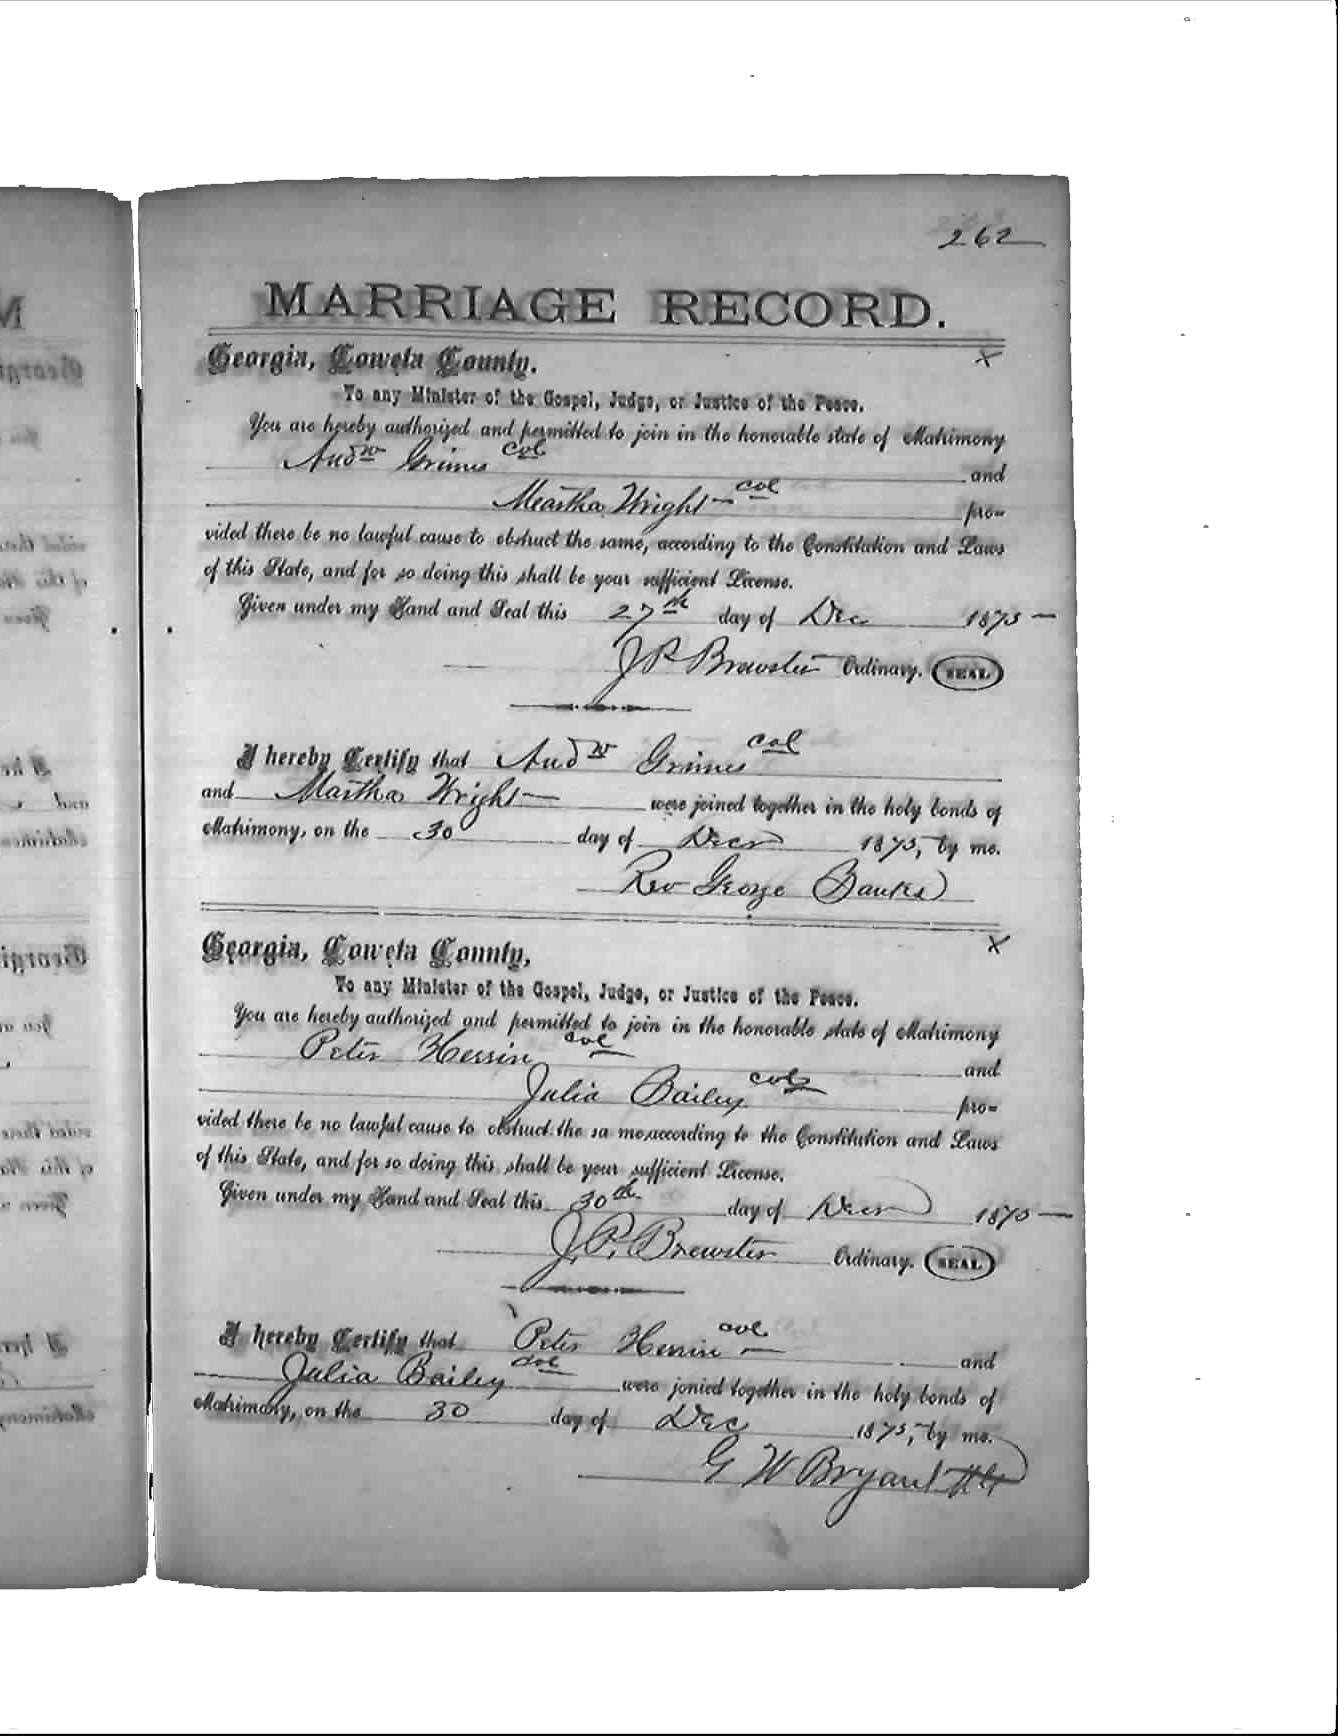 262
MARRIAGE RECORD.
Georgia, Coweta County. x
To any Minister of the Gospel, Judge, or Justice of the Peace.
You are hereby authorized and permitted to join in the honorable state of Matrimony
Andw Grimes col and
Martha Wright col pro=
vided there be no lawful cause to obstruct the same, according to the Constitution and Laws
of this State, and for so doing this shall be your sufficient License.
Given under my Hand and Seal this 27th day of Dec 1875
J P Brewster Ordinary. SEAL
I hereby Certify that Andw Grimes col
and Martha Wright were joined together in the holy bonds of
Matrimony, on the 30 day of Decr 1875, by me.
Rev George Banks
Georgia, Coweta County, x
To any Minister of the Gospel, Judge, or Justice of the Peace.
You are hereby authorized and permitted to join in the honorable state of Matrimony
Peter Herrin col and
Julia Bailey col pro=
vided there be no lawful cause to obstruct the sa me,according to the Constitution and Laws
of this State, and for so doing this shall be your sufficient License.
Given under my Hand and Seal this 30th day of Decr 1875
J. P. Brewster Ordinary. SEAL
I hereby Certify that Peter Herrin col and
Julia Bailey col were jonied together in the holy bonds of
Matrimony, on the 30 day of Dec 1875, by me.
G W Bryant